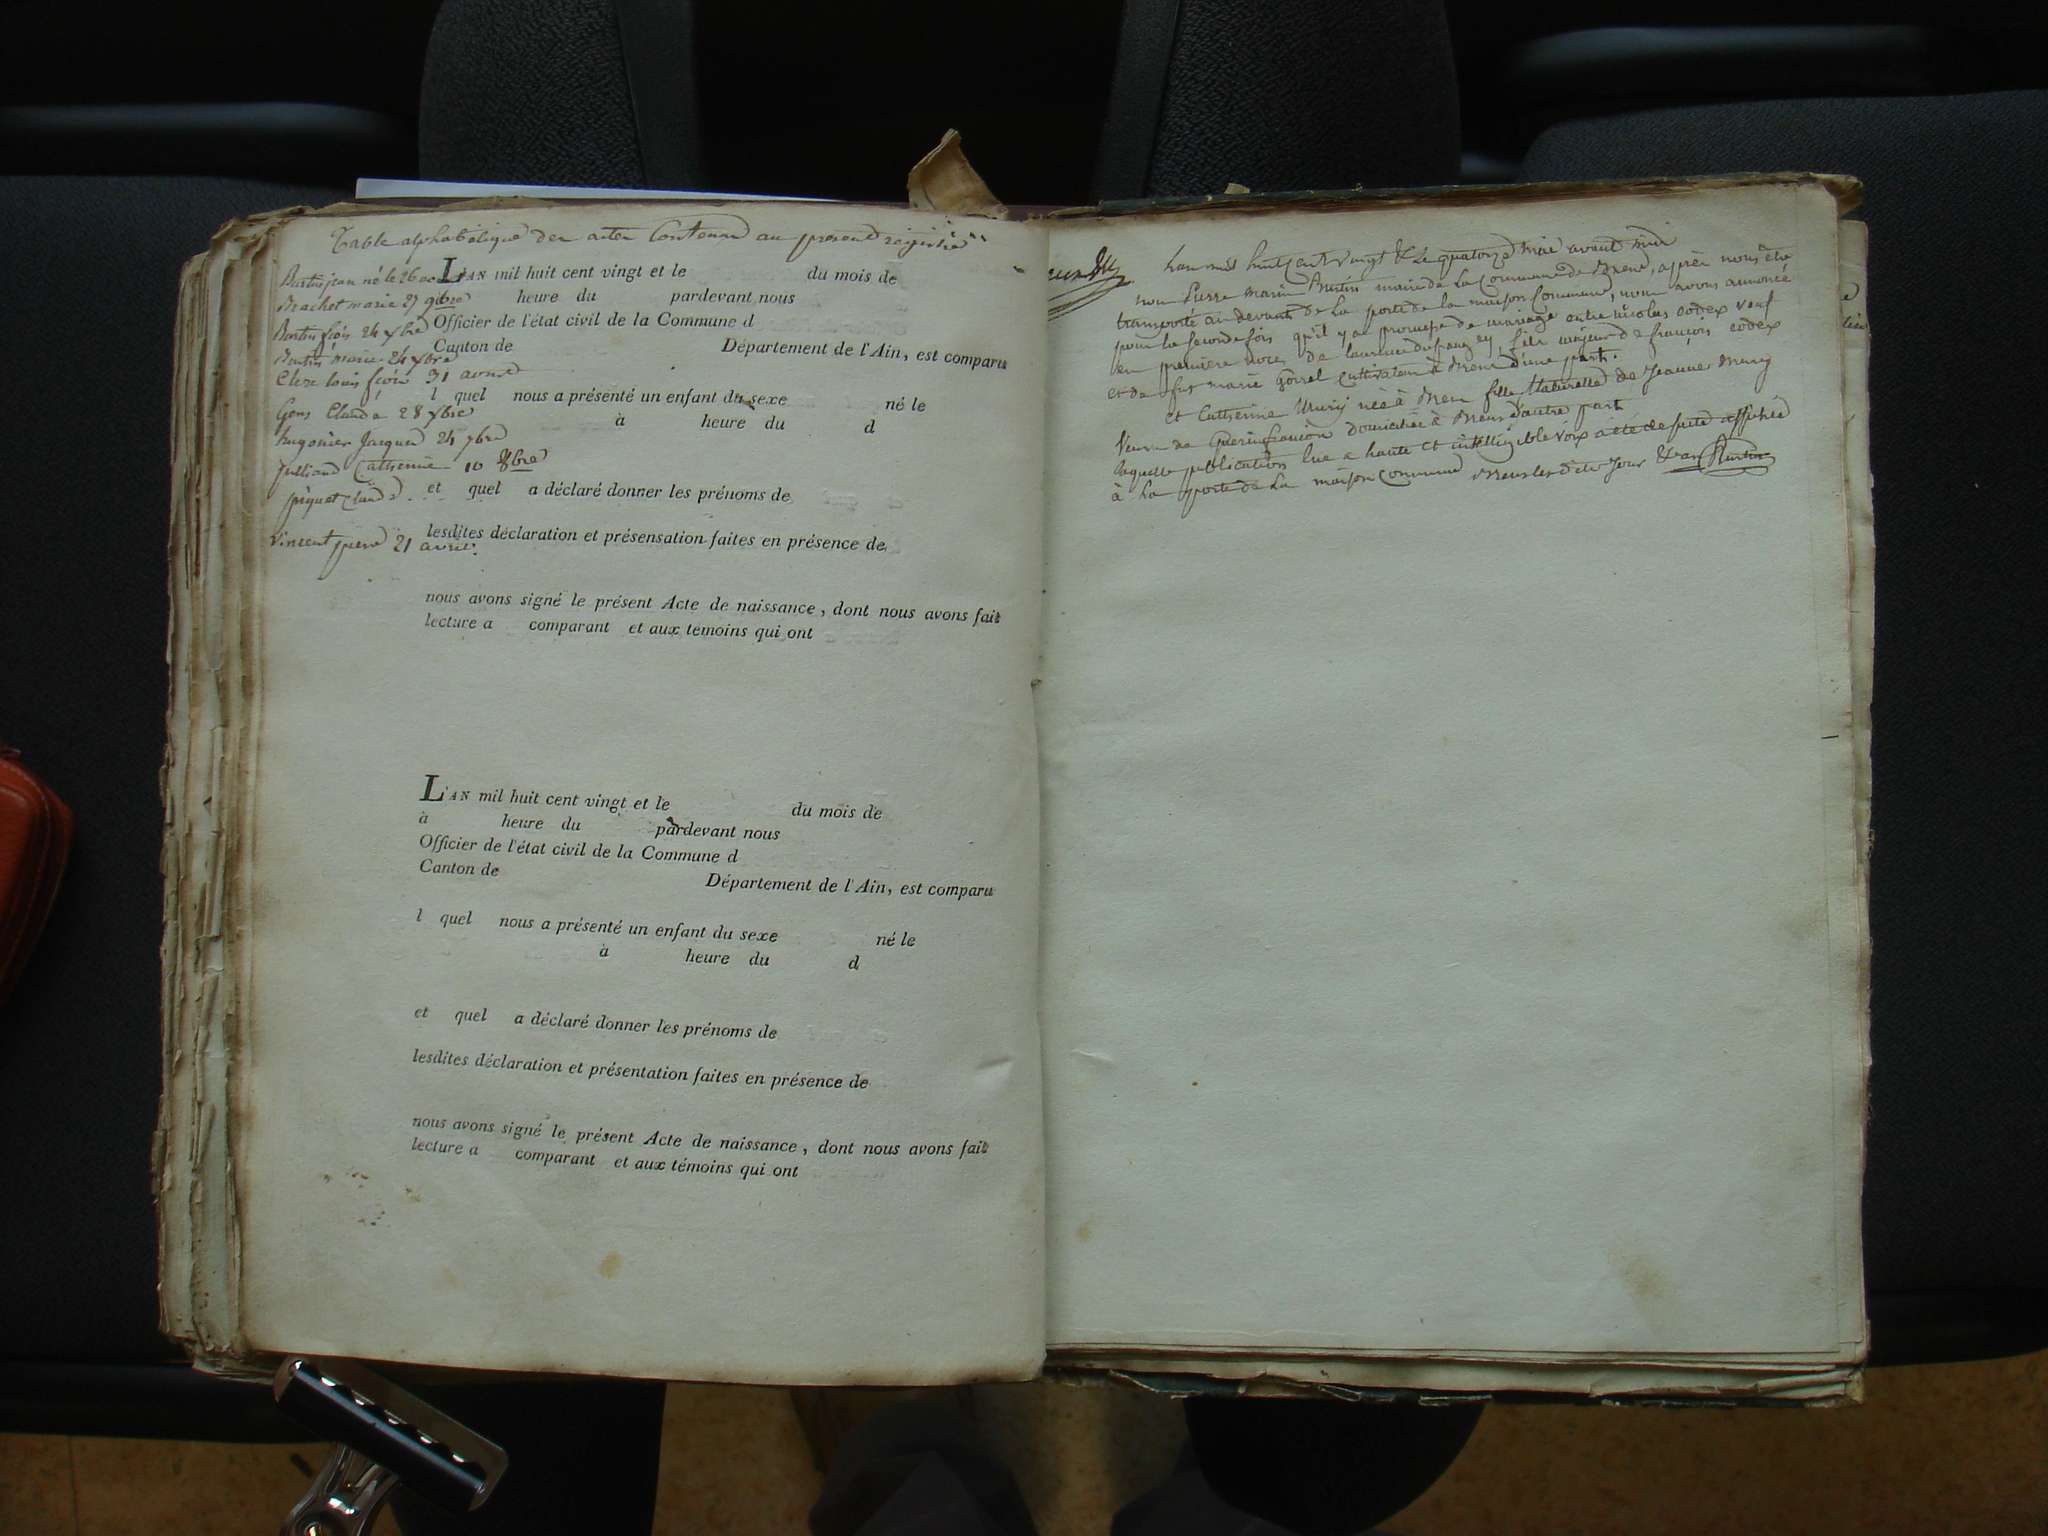 Table alphabétique des actes Contenus au présent registre
Burtin jean né le 26
Brachet marie 27 9bre
Burtin fçois 24 xbre
Burtin marie 24 xbre
Clerc louis fçois 31
Gons Claude 28 xbre
hugonier Jacques 24 7bre
Julliand Catherine 10 8bre
piquet Claude
Vincent pierre 21 avril
L'AN mil huit cent vingt et le du mois de
heure du pardevant nous
Officier de l'état civil de la Commune d
Canton de Département de l'Ain, est comparu
l quel nous a présenté un enfant du sexe né le
à heure du d
et quel a déclaré donner les prénoms de
lesdites déclaration et présensation faites en présence de
nous avons signé le présent Acte de naissance, dont nous avons fait
lecture a comparant et aux témoins qui ont
L'AN mil huit cent vingt et le du mois de
à heure du pardevant nous
Officier de l'état civil de la Commune d
Canton de Département de l'Ain, est comparu
l quel nous a présenté un enfant du sexe né le
à heure du d
et quel a déclaré donner les prénoms de
lesdites déclaration et présentation faites en présence de
nous avons signé le présent Acte de naissance, dont nous avons fait
lecture a comparant et aux témoins qui ont
Lan mil huit cent vingt & le quatorze mai avant midi
nous Pierre Marin Burtin maire de La Commune de Brens, après nous être
transporté au devant de La porte de la maison Commune, nous avons annoncé
pour la seconde fois qu'il y a promesse de mariage entre nicolas codex veuf
en première noces de laurence dufrançey, fils majeur de françois codex
et de fue marie gorrel cultivateur à Brens d'une part.
et Catherine Murij née à Bren fille Naturelle de Jeanne murij
Veuve de Guerin françois domiciliée à Brens d'autre part
laquelle publication lue a haute et intelligible voix a été de suite affichée
à La porte de La maison Commune Brens les dits Jour & an Burtin